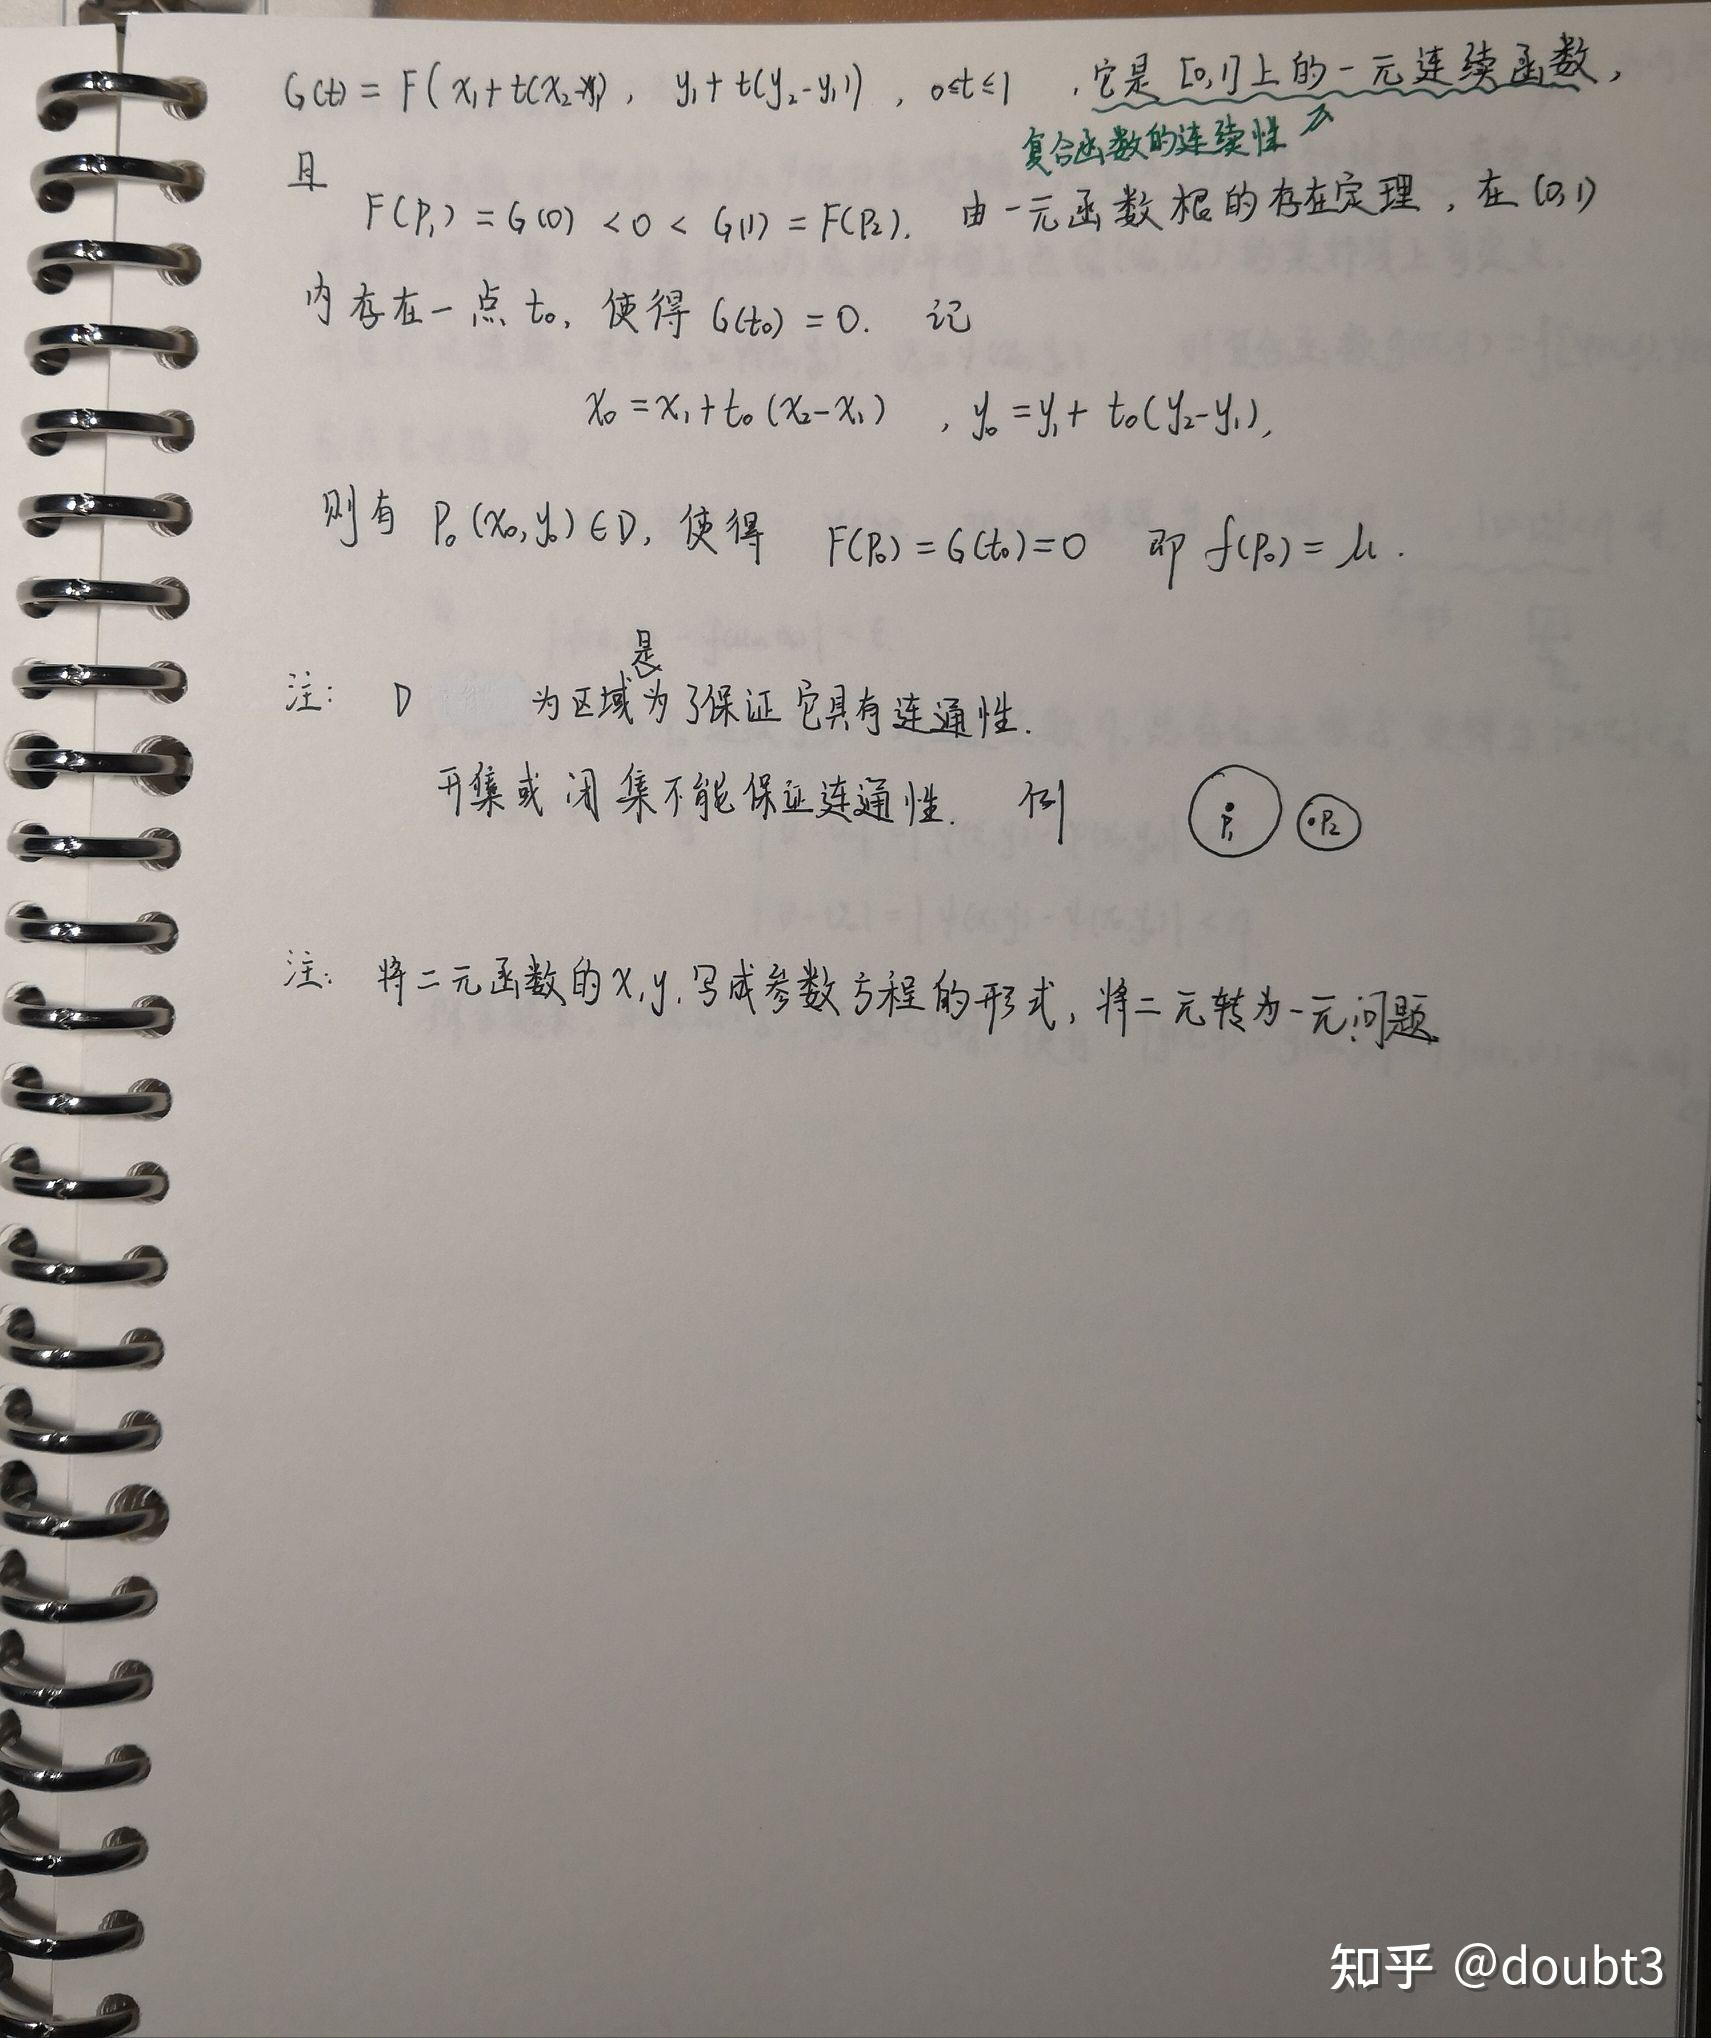 G(t) = F(x₁+t(x₂-x₁), y₁+t(y₂-y₁)), 0≤t≤1, 它是[0,1]上的一元连续函数,
复合函数的连续性
且
F(P₁) = G(0) < 0 < G(1) = F(P₂). 由一元函数根的存在定理, 在(0,1)
内存在一点t₀, 使得 G(t₀) = 0. 记
x₀ = x₁+t₀(x₂-x₁), y₀ = y₁+t₀(y₂-y₁),
则有 P₀(x₀,y₀)∈D, 使得 F(P₀) = G(t₀) = 0 即 f(P₀) = μ.
注: D 为区域是为了保证它具有连通性.
开集或闭集不能保证连通性. 例 P₁ P₂
注: 将二元函数的x,y,写成参数方程的形式, 将二元转为一元问题.
知乎 @doubt3